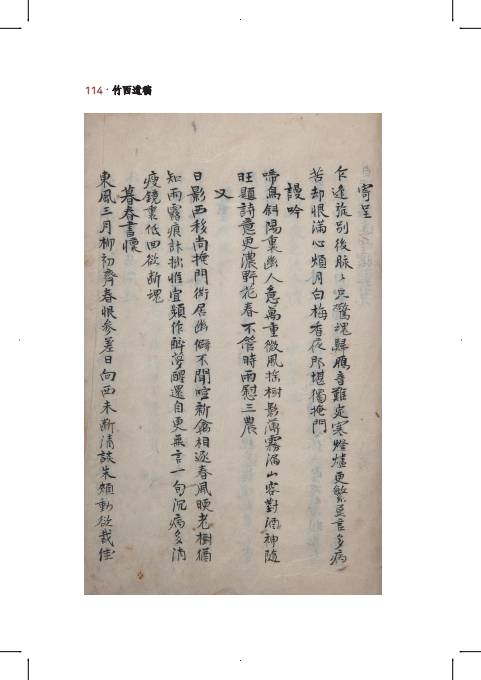 114 · 竹西遺稿
寄呈
乍逢旋別後脉〻只驚魂歸鴈音難定寒燈燼更繁呈言多病
苦却眼滿心煩月白梅香夜那堪獨掩門
謾吟
啼鳥斜陽裏幽人意萬重微風搖樹影薄霧滴山容對酒神隨
旺題詩意更濃野花春不管時雨慰三農
又
日影西移尚掩門街居幽僻不聞喧新禽相逐春風暖老樹猶
知雨露痕詠拙惟宜頻作醉夢醒還自更無言一旬沉病多消
瘦鏡裏低回欲斷魂
暮春書懷
東風三月柳初齊春恨參差日向西未斷清談朱頰動欲裁佳